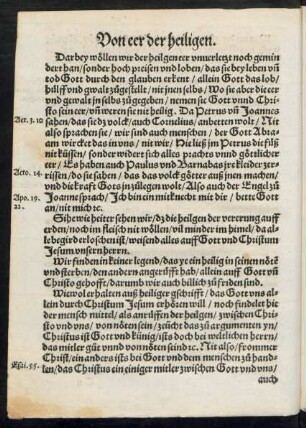 Von eer der heiligen.
Darbey wöllen wir der heilgen eer vnuerletzt noch gemin
dert han/ sonder hoch preisen vnd loben/ das sie bey leben vñ
tod Gott durch den glauben erkent/ allein Gott das lob/
hilff vnd gwalt zůgestellt/ nit jnen selbs/ Wo sie aber die eer
vnd gewalt jn selbs zůgegeben/ nemen sie Gott vnnd Chri-
sto sein eer/ vñ weren sie nit heilig. Da Petrus vñ Joannes
Act. 3. 10
sahen/ das sie dz volck/ auch Cornelius/ anbetten wolt/ Nit
also sprachen sie/ wir sind auch menschen/ der Gott Abra-
am wircket das in vns/ nit wir/ Nit ließ jm Petrus die füß
nit küssen/ sonder widert sich alles prachts vnnd göttlicher
eer/ Es haben auch Paulus vnd Barnabas jre kleider zer-
Acto. 14.
rissen/ do sie sahen/ das das volck götter auß jnen machen/
vnd die krafft Gots jn zůlegen wolt/ Also auch der Engel zů
Apo. 19.
Joanne sprach/ Ich bin ein mitknecht mit dir/ bette Gott
22.
an/ nit mich ꝛc.
Sihe wie heiter sehen wir/ dz die heilgen der vererung auff
erden/ noch im fleisch nit wöllen/ vil minder im himel/ da al-
le begird erloschen ist/ weisend alles auff Gott vnd Christum
Jesum vnsern herrn.
Wir finden in keiner legend/ das ye ein heilig in seinen nötẽ
vnd sterben/ den andern angerüfft hab/ allein auff Gott vñ
Christo gehofft/ darumb wir auch billich zů friden sind.
Wiewol erhalten auß heiliger gschifft/ das Gott vns al
lein durch Christum Jesum erhören will/ noch findelet hie
der mensch mittel/ als anrüffen der heilgen/ zwischen Chri-
sto vnd vns/ von nöten sein/ zeücht das zů argumenten yn/
Christus ist Gott vnd künig/ ists doch bei weltlichen herrn/
das mitler gůt vnnd von nöten seind ꝛc. Nit also/ frommer
Christ/ ein anders ists bei Gott vnd dem menschen zů hand-
Esai. 55.
len/ das Christus ein einiger mitler zwischen Gott vnd vns/
auch